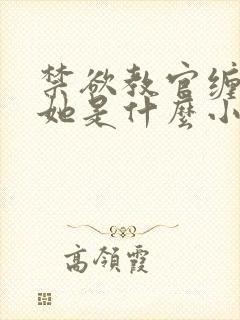 禁欲教官缠
她是什麼小
高領霞